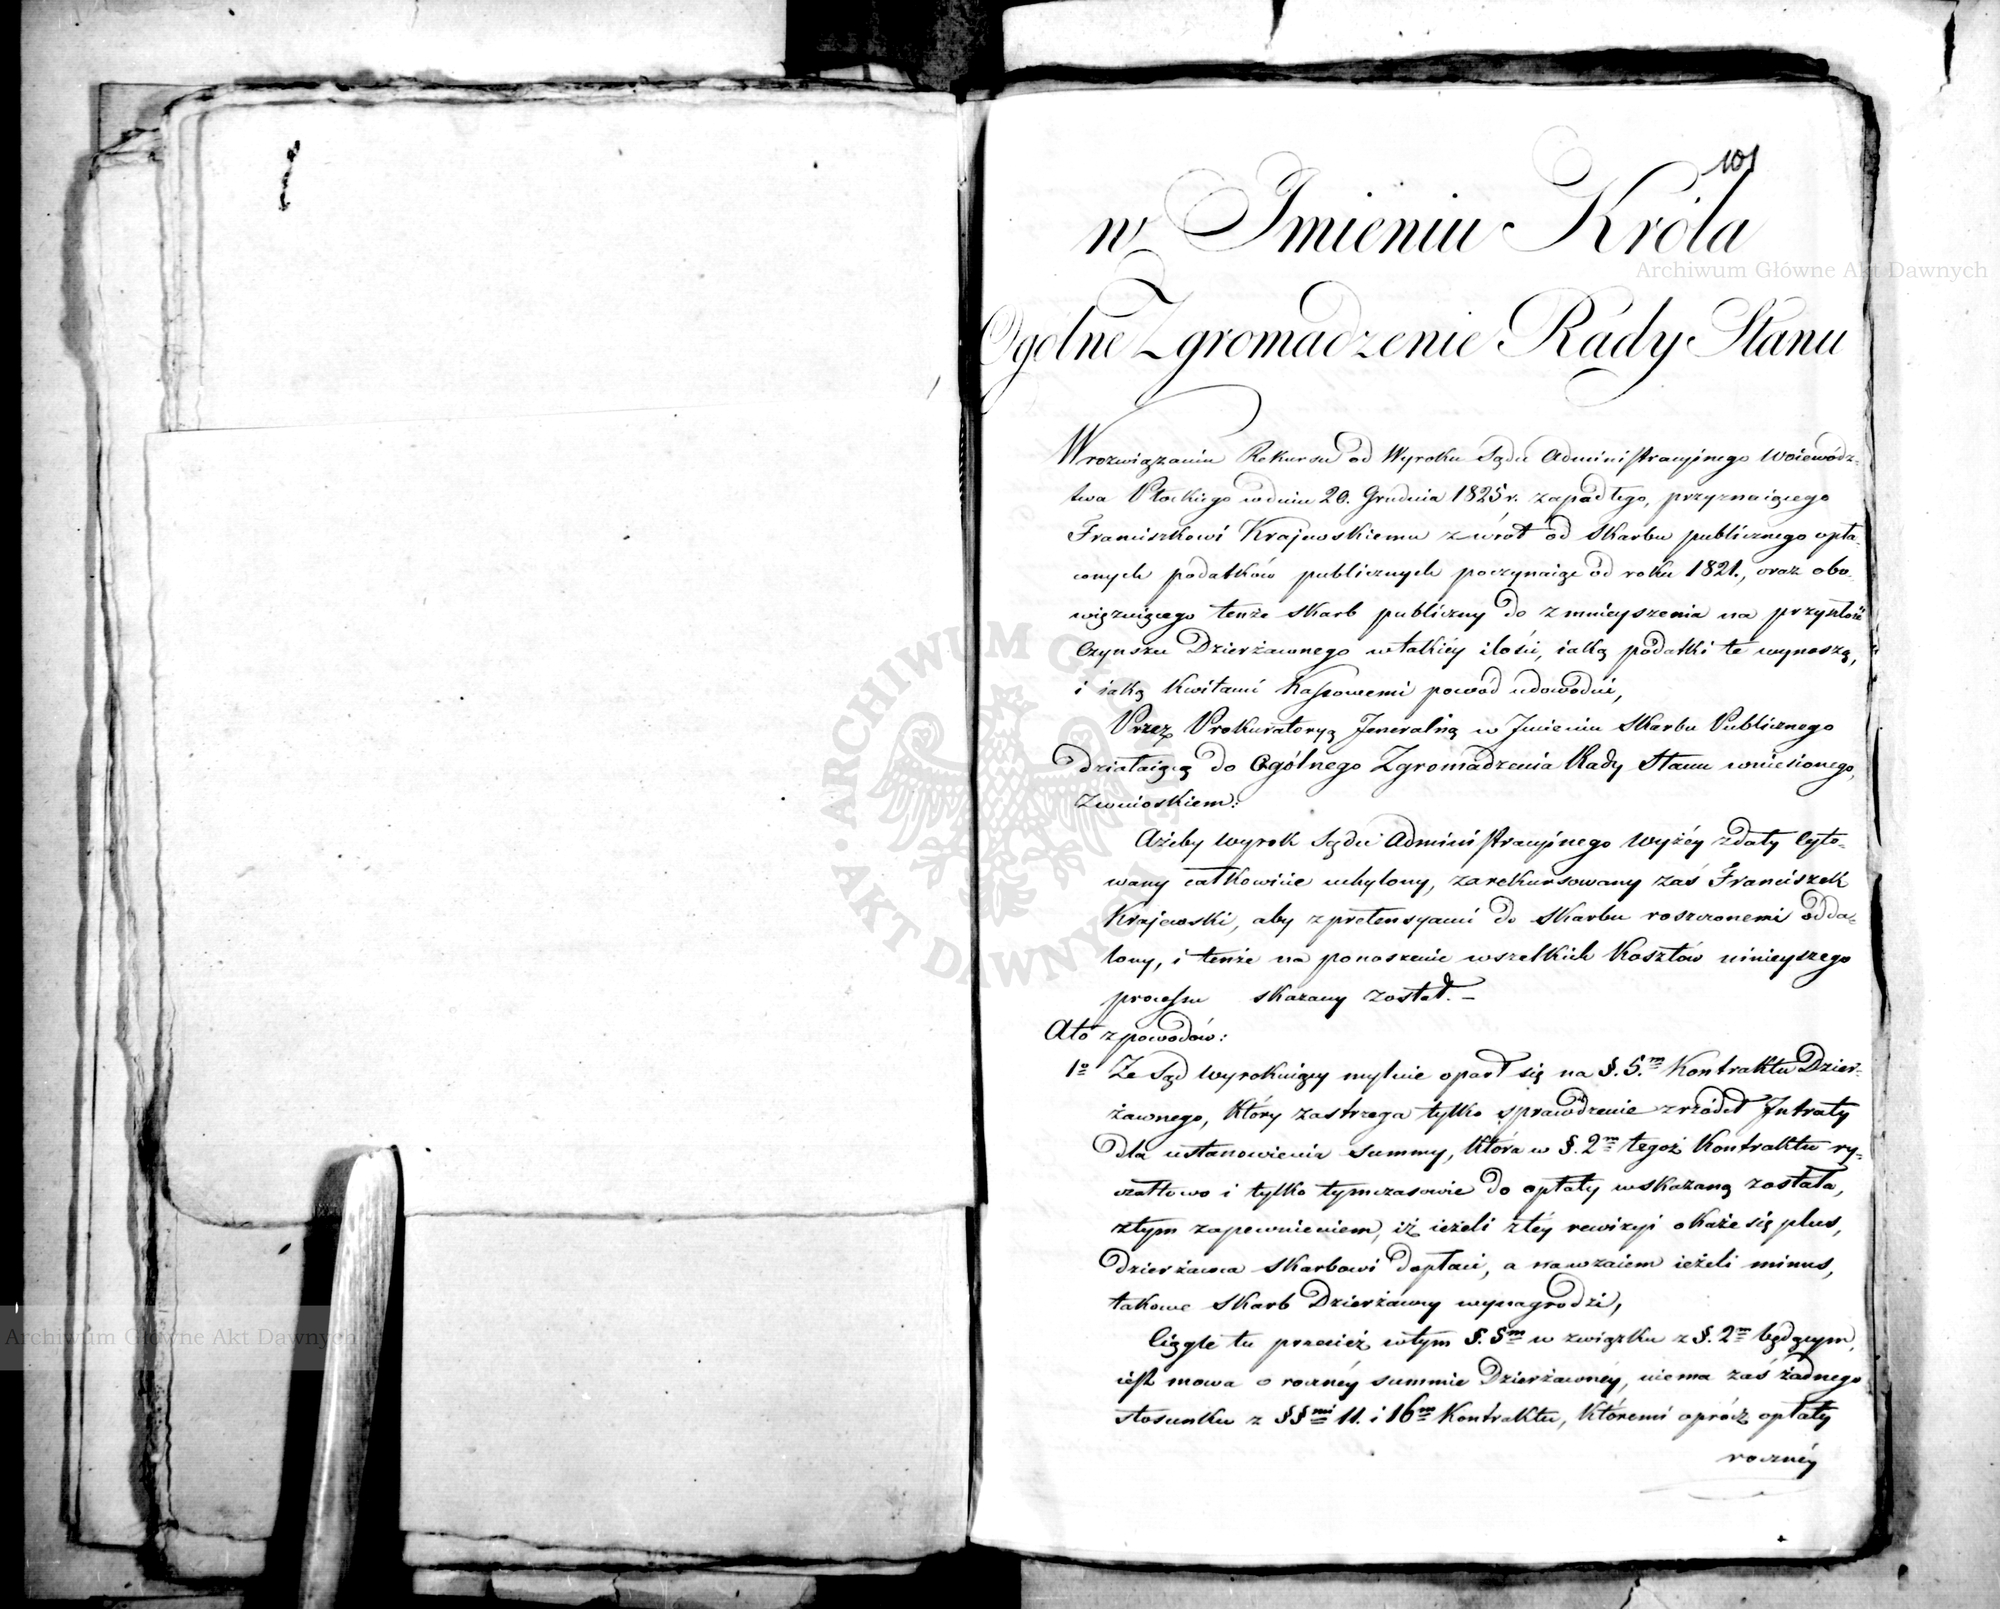 101
w Imieniu Króla
Archiwum Główne Akt Dawnych
Ogólne Zgromadzenie Rady Stanu
W rozwiązaniu Rekursu od Wyroku Sądu Administracyinego Woiewódz-
twa Płockiego w dniu 20. Grudnia 1825 r. zapadłego, przyznaiącego
Franciszkowi Krajewskiemu zwrót od Skarbu publicznego opła-
conych podatków publicznych poczynaiąc od roku 1821., oraz obo-
wiązuiącego tenże Skarb publiczny do zmnieyszenia na przyszłość
Czynszu Dzierżawnego w takiéy ilości, iaką podatki te wynoszą,
i iaką Kwitami Kassowemi powód udowodni,
Przez Prokuratoryą Jeneralną w Jmieniu Skarbu Publicznego
działaiącą do Ogólnego Zgromadzenia Rady Stanu wniesionego,
z wnioskiem:
Ażeby wyrok Sądu Administracyinego wyżéy z daty cyto-
wany całkowicie uchylony, zarekursowany zaś Franciszek
Krajewski, aby z pretensyami do Skarbu roszczonemi odda-
lony, i tenże na ponoszenie wszelkich Kosztów ninieyszego
processu skazany został. –
A to z powodów:
1º Że Sąd wyrokuiący mylnie oparł się na §. 5.m Kontraktu Dzier-
żawnego, który zastrzega tylko sprawdzenie zrzódeł Jntraty
dla ustanowienia summy, która w §. 2m tegoż Kontraktu ry-
czałtowo i tylko tymczasowie do opłaty wskazaną została,
z tym zapewnieniem, iż ieżeli z téy rewizyi okaże się plus,
dzierżawca Skarbowi dopłaci, a nawzaiem ieżeli minus,
takowe Skarb Dzierżawcy wynagrodzi,
Ciągle tu przecież w tym §. 5m w związku z §. 2m będącym,
iest mowa o rocznéy summie Dzierżawnéy, niema zaś żadnego
stosunku z §§mi 11. i 16m Kontraktu, któremi oprócz opłaty
rocznéy
ARCHIWUM GŁÓWNE AKT DAWNYCH
Archiwum Główne Akt Dawnych